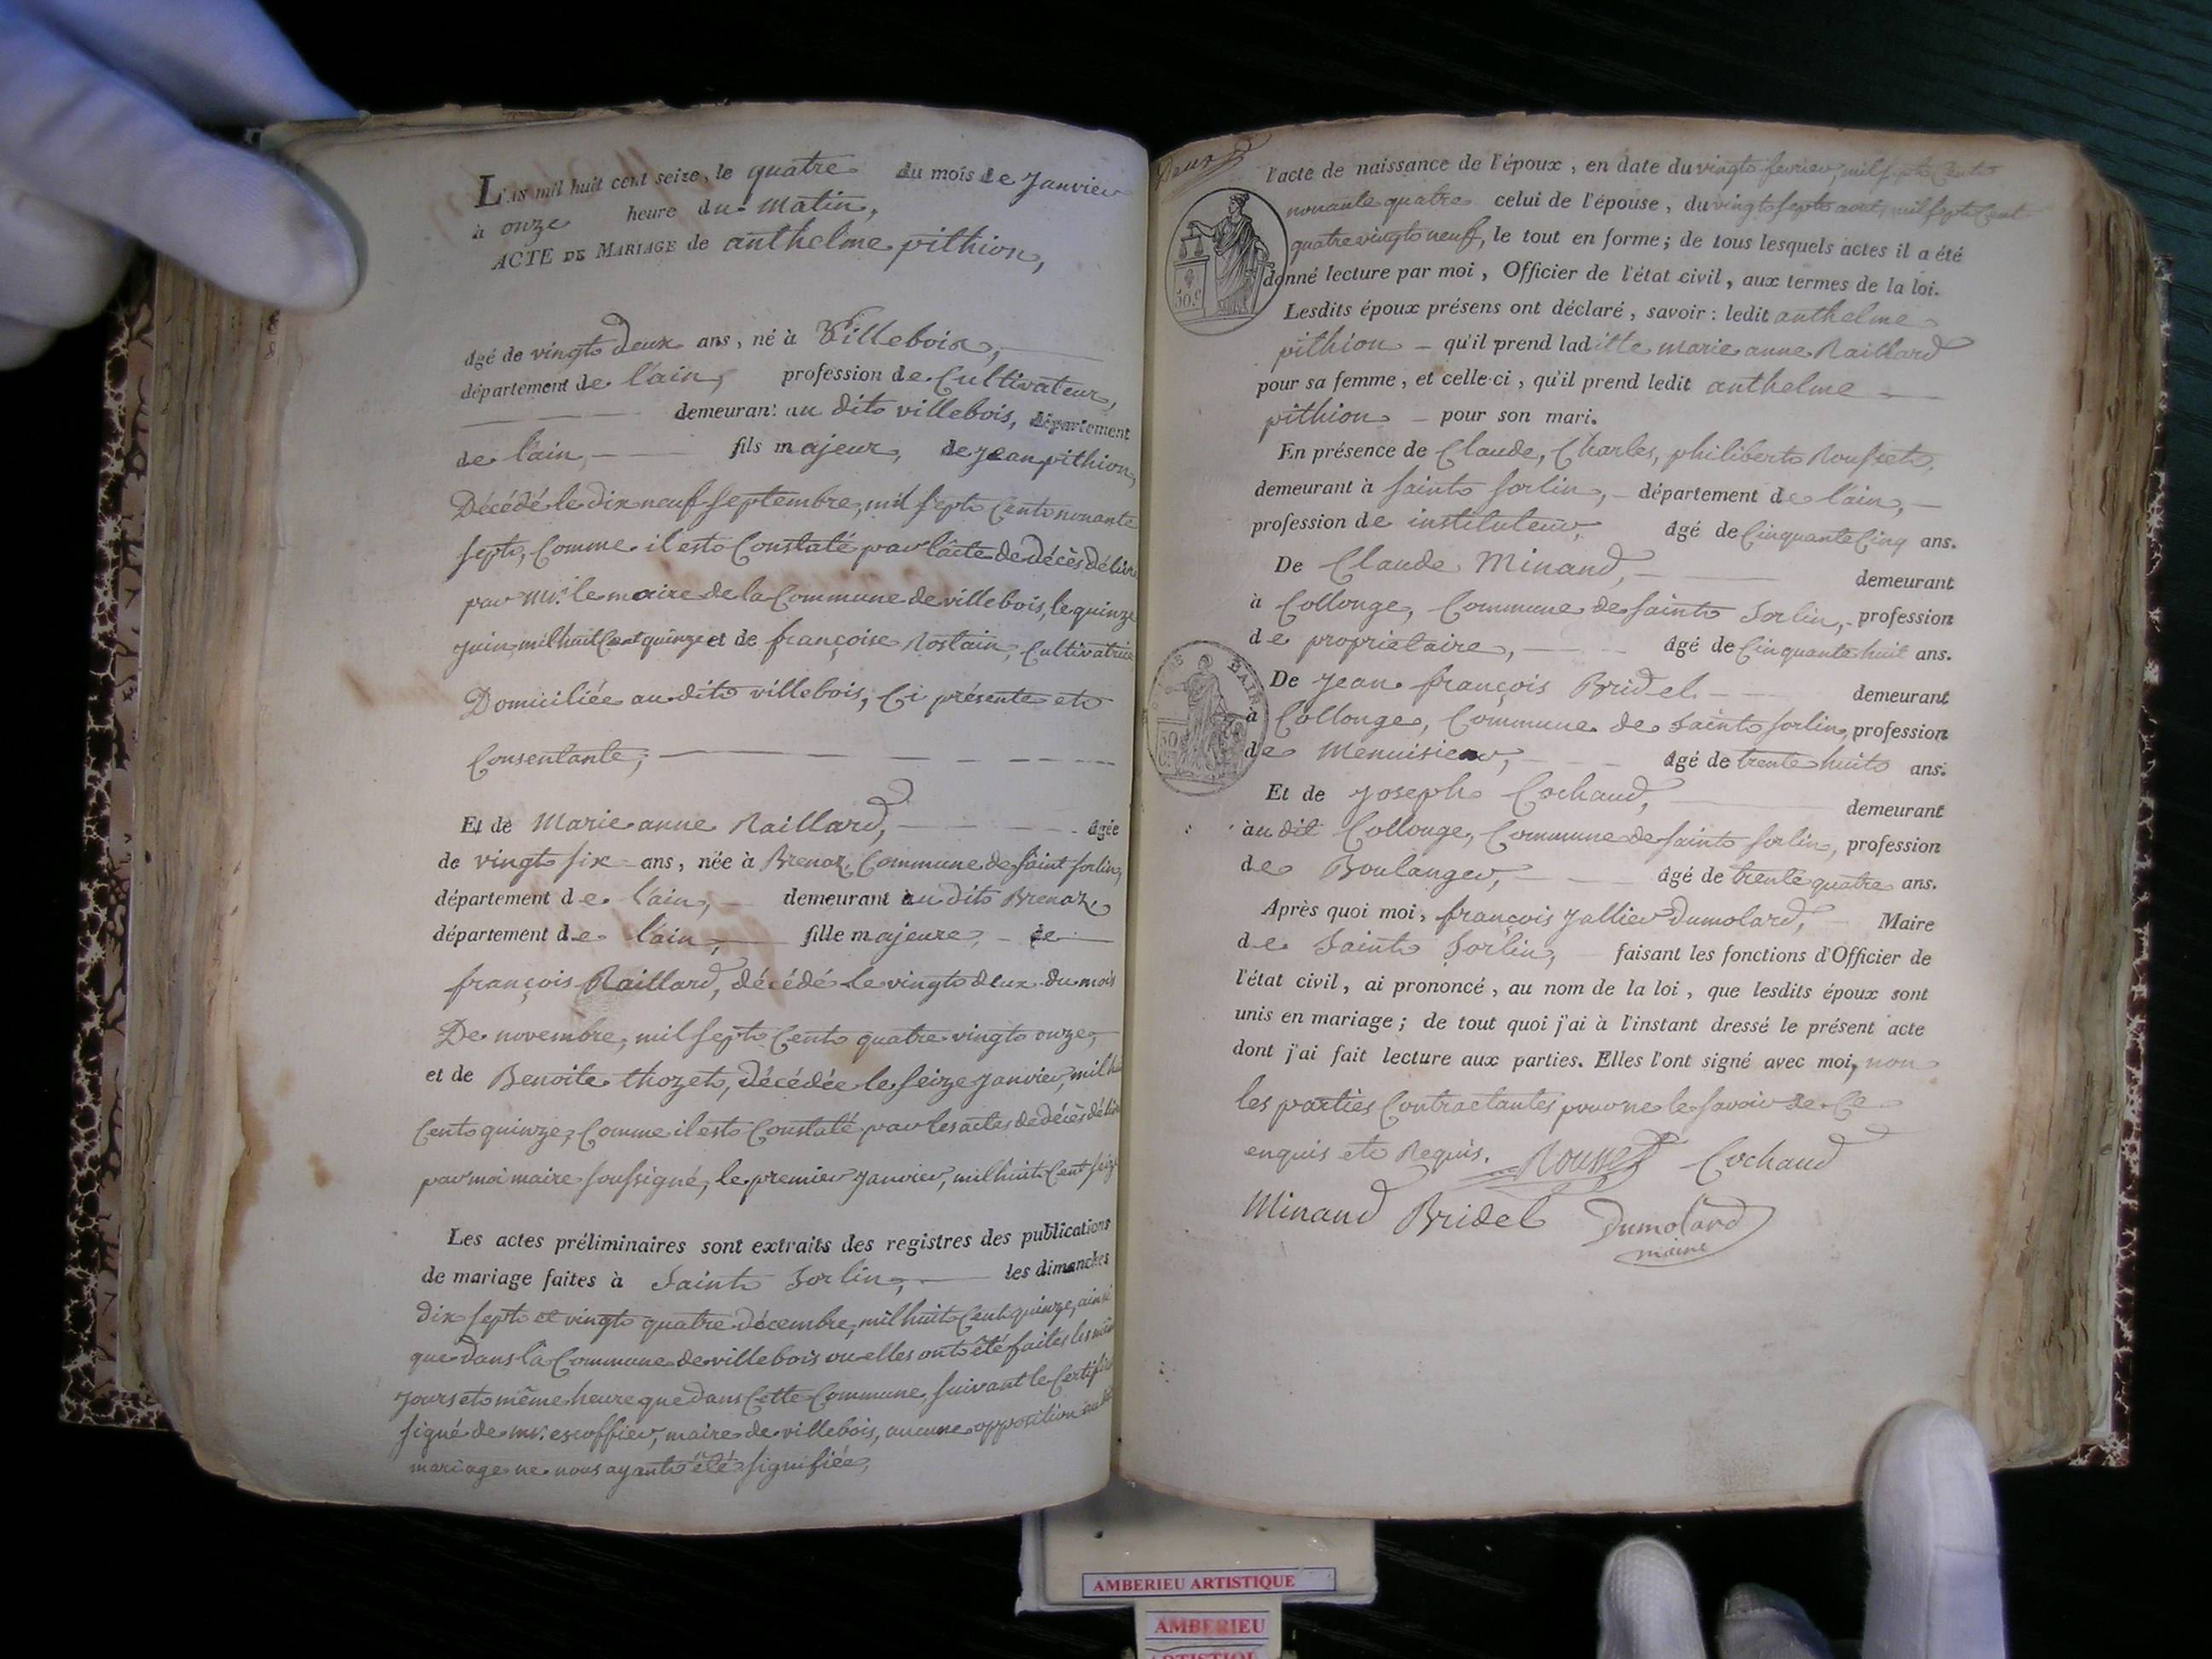 L'AN mil huit cent seize, le quatre du mois de Janvier
à onze heure du matin,
ACTE DE MARIAGE de anthelme pithion,
âgé de vingt deux ans, né à Villebois,
département de l'ain, profession de Cultivateur,
demeurant au dit villebois, département
de l'ain, fils majeur, de jean pithion,
Décédé le dix neuf septembre, mil sept cent nonante
sept, Comme il est Constaté par l'acte de décès délivré
par Mr. le maire de la Commune de villebois, le quinze
juin, mil huit Cent quinze et de françoise Rostain, Cultivatrice
Domiciliée au dit villebois, Ci présente et
Consentante,
Et de Marie anne Raillard, âgée
de vingt six ans, née à Brenaz, Commune de saint sorlin,
département de l'ain, demeurant au dit Brenaz,
département de l'ain, fille majeure, de
françois Raillard, décédé le vingt deux du mois
De novembre, mil sept Cent quatre vingt onze,
et de Benoite thozet, décédée le seize janvier, mil hui
Cent quinze, Comme il est Constaté par les actes de décès déliv
par moi maire soussigné, le premier janvier, mil huit Cent seize
Les actes préliminaires sont extraits des registres des publications
de mariage faites à Saint Sorlin, les dimanches
dix sept et vingt quatre décembre, mil huit Cent quinze, ainsi
que dans la Commune de villebois ou elles ont été faites les mêm
jours et même heure que dans Cette Commune, suivant le Certific
signé de mr. escoffier, maire de villebois, aucune opposition audit
mariage ne nous ayant été signifiée,
Deux
l'acte de naissance de l'époux, en date du vingt fevrier, mil sept Cent
nonante quatre celui de l'épouse, du vingt sept aout, mil sept Cent
quatre vingt neuf, le tout en forme; de tous lesquels actes il a été
donné lecture par moi, Officier de l'état civil, aux termes de la loi.
Lesdits époux présens ont déclaré, savoir: ledit anthelme
pithion qu'il prend laditte marie anne Raillard
pour sa femme, et celle-ci, qu'il prend ledit anthelme
pithion pour son mari.
En présence de Claude, Charles, philibert Rousset,
demeurant à saint sorlin, département de l'ain,
profession de instituteur, âgé de Cinquante Cinq ans.
De Claude Minand, demeurant
à Collonge, Commune de saint Sorlin, profession
de propriétaire, âgé de Cinquante huit ans.
De jean françois Bridel demeurant
à Collonge, Commune de saint sorlin, profession
de Menuisier, âgé de trente huit ans.
Et de joseph Cochaud, demeurant
au dit Collonge, Commune de saint sorlin, profession
de Boulanger, âgé de trente quatre ans.
Après quoi moi, françois jallier Dumolard, Maire
de Saint Sorlin, faisant les fonctions d'Officier de
l'état civil, ai prononcé, au nom de la loi, que lesdits époux sont
unis en mariage; de tout quoi j'ai à l'instant dressé le présent acte
dont j'ai fait lecture aux parties. Elles l'ont signé avec moi, non
les parties Contractantes pour ne le savoir de Ce
enquis et Requis. Rousset Cochaud
Minand Bridel Dumolard
maire
50 C.
50
AMBERIEU ARTISTIQUE
AMBERIEU
ARTISTIQUE